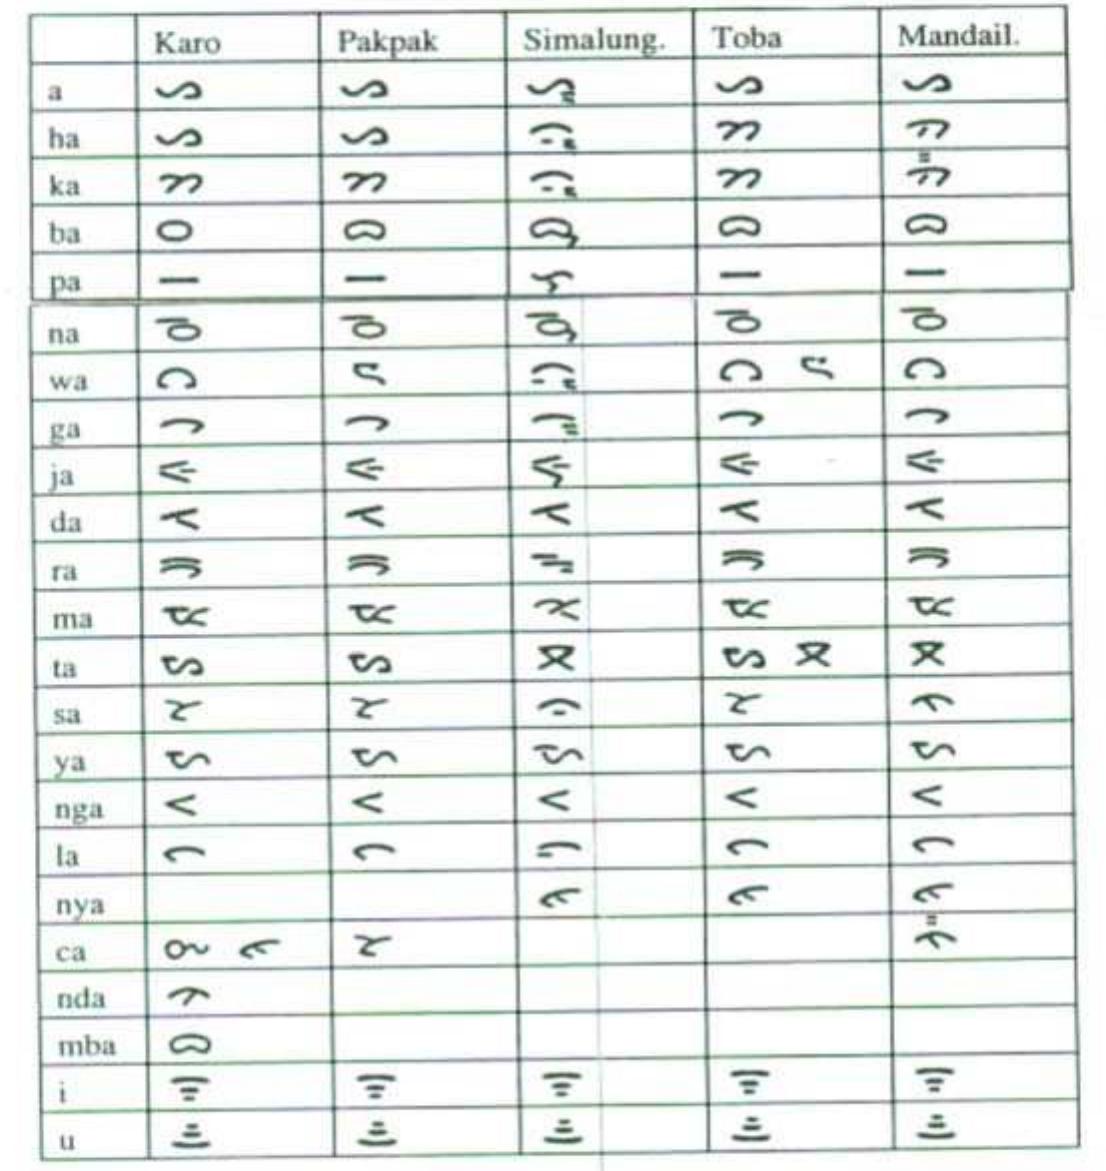 Karo Pakpak Simalung. Toba Mandail.
a ᯀ ᯀ ᯁ ᯀ ᯀ
ha ᯀ ᯀ ᯃ ᯂ ᯄ
ka ᯂ ᯂ ᯃ ᯂ ᯄ᯦
ba ᯆ ᯅ ᯅ ᯅ ᯅ
pa ᯇ ᯇ ᯈ ᯇ ᯇ
na ᯉ ᯉ ᯉ ᯉ ᯊ
wa ᯋ ᯍ ᯌ ᯋ ᯍ ᯋ
ga ᯎ ᯎ ᯏ ᯎ ᯎ
ja ᯐ ᯐ ᯐ ᯐ ᯐ
da ᯑ ᯑ ᯑ ᯑ ᯑ
ra ᯒ ᯒ ᯓ ᯒ ᯒ
ma ᯔ ᯔ ᯕ ᯔ ᯔ
ta ᯗ ᯗ ᯖ ᯗ ᯖ ᯖ
sa ᯘ ᯘ ᯙ ᯘ ᯚ
ya ᯛ ᯛ ᯜ ᯛ ᯛ
nga ᯝ ᯝ ᯝ ᯝ ᯝ
la ᯞ ᯞ ᯟ ᯞ ᯞ
nya ᯠ ᯠ ᯠ
ca ᯡ ᯠ ᯘ ᯚ᯦
nda ᯢ
mba ᯣ
i ᯤ ᯤ ᯤ ᯤ ᯤ
u ᯥ ᯥ ᯥ ᯥ ᯥ